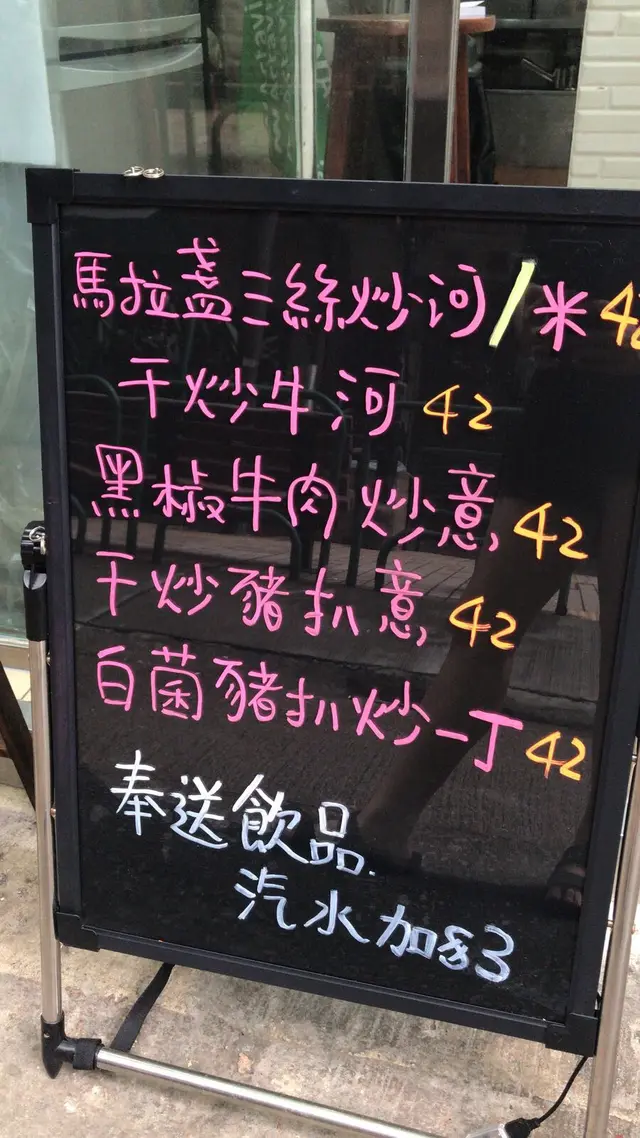 馬拉盞三絲炒河/米 42
干炒牛河 42
黑椒牛肉炒意 42
干炒豬扒意 42
白菌豬扒炒一丁 42
奉送飲品.
汽水加$3